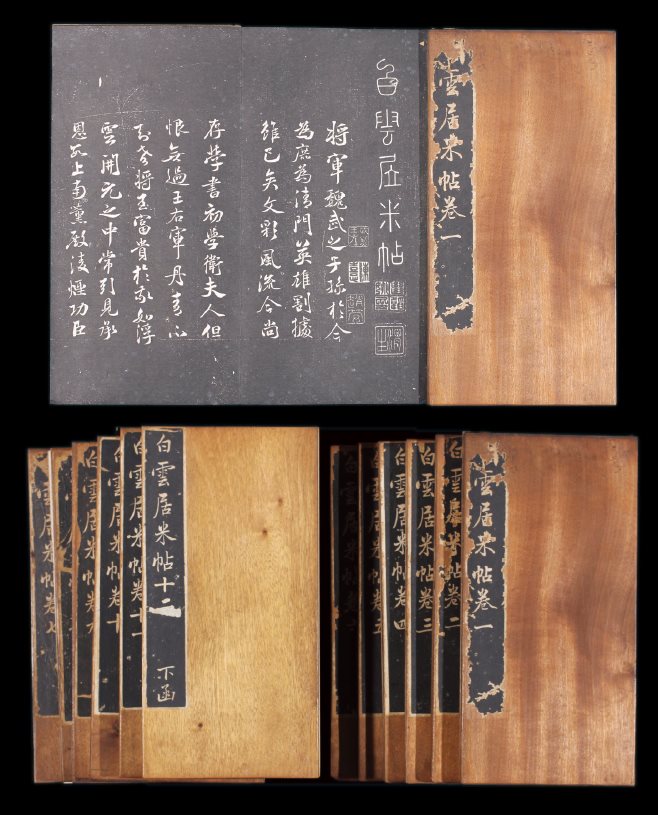 雲居米帖卷一
白雲居米帖
將軍魏武之子孫於今
為庶為清門英雄割據
雖已矣文彩風流今尚
存學書初學衛夫人但
恨無過王右軍丹青不
知老將至富貴於我如浮
雲開元之中常引見承
恩數上南薰殿淩煙功臣
雲居米帖卷一
白雲居米帖卷二
白雲居米帖卷三
白雲居米帖卷四
白雲居米帖卷五
白雲居米帖卷
白雲居米帖十二
下函
白雲居米帖十一
白雲居米帖卷十
白雲居米帖卷九
雲居米帖卷七